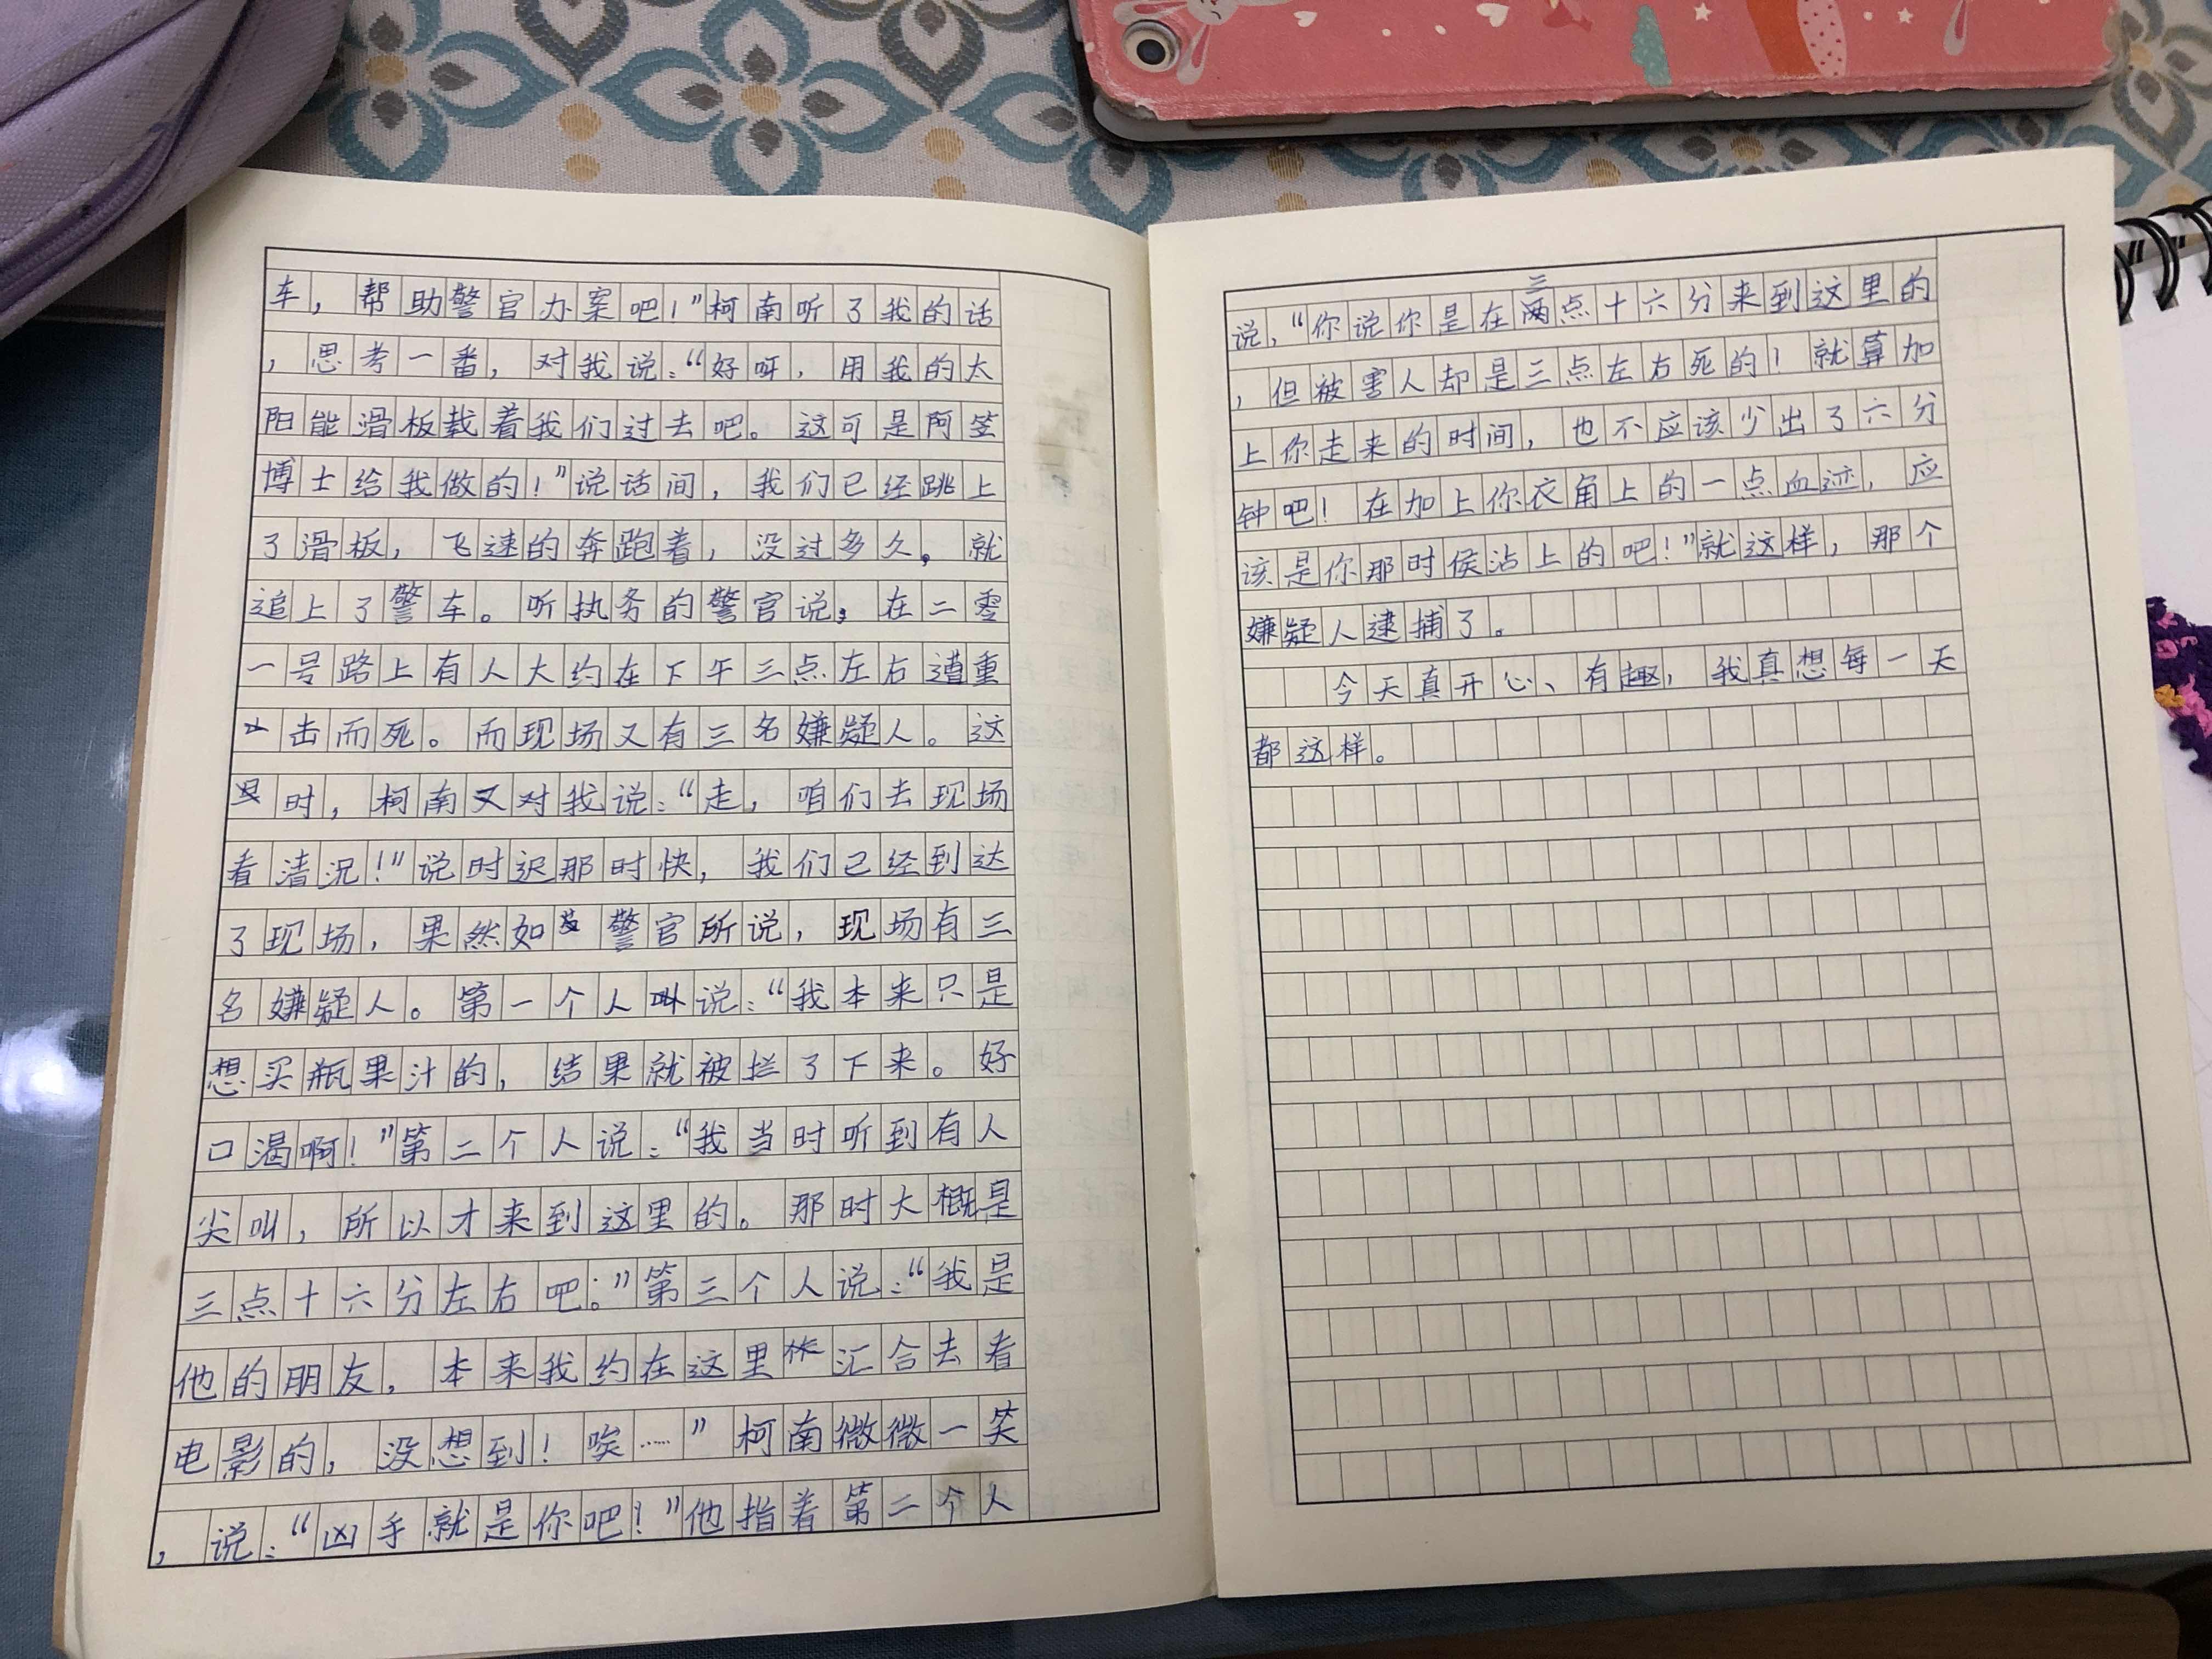 车，帮助警官办案吧！”柯南听了我的话
，思考一番，对我说：“好呀，用我的太
阳能滑板载着我们过去吧。这可是阿笠
博士给我做的！”说话间，我们已经跳上
了滑板，飞速的奔跑着，没过多久，就
追上了警车。听执务的警官说，在二零
一号路上有人大约在下午三点左右遭重
击而死。而现场又有三名嫌疑人。这
时，柯南又对我说：“走，咱们去现场
看清况！”说时迟那时快，我们已经到达
了现场，果然如警官所说，现场有三
名嫌疑人。第一个人叫说：“我本来只是
想买瓶果汁的，结果就被拦了下来。好
口渴啊！”第二个人说：“我当时听到有人
尖叫，所以才来到这里的。那时大概是
三点十六分左右吧。”第三个人说：“我是
他的朋友，本来我约在这里汇合去看
电影的，没想到！唉……”柯南微微一笑
，说：“凶手就是你吧！”他指着第二个人
说，“你说你是在三点十六分来到这里的
，但被害人却是三点左右死的！就算加
上你走来的时间，也不应该少出了六分
钟吧！在加上你衣角上的一点血迹，应
该是你那时侯沾上的吧！”就这样，那个
嫌疑人逮捕了。
今天真开心、有趣，我真想每一天
都这样。